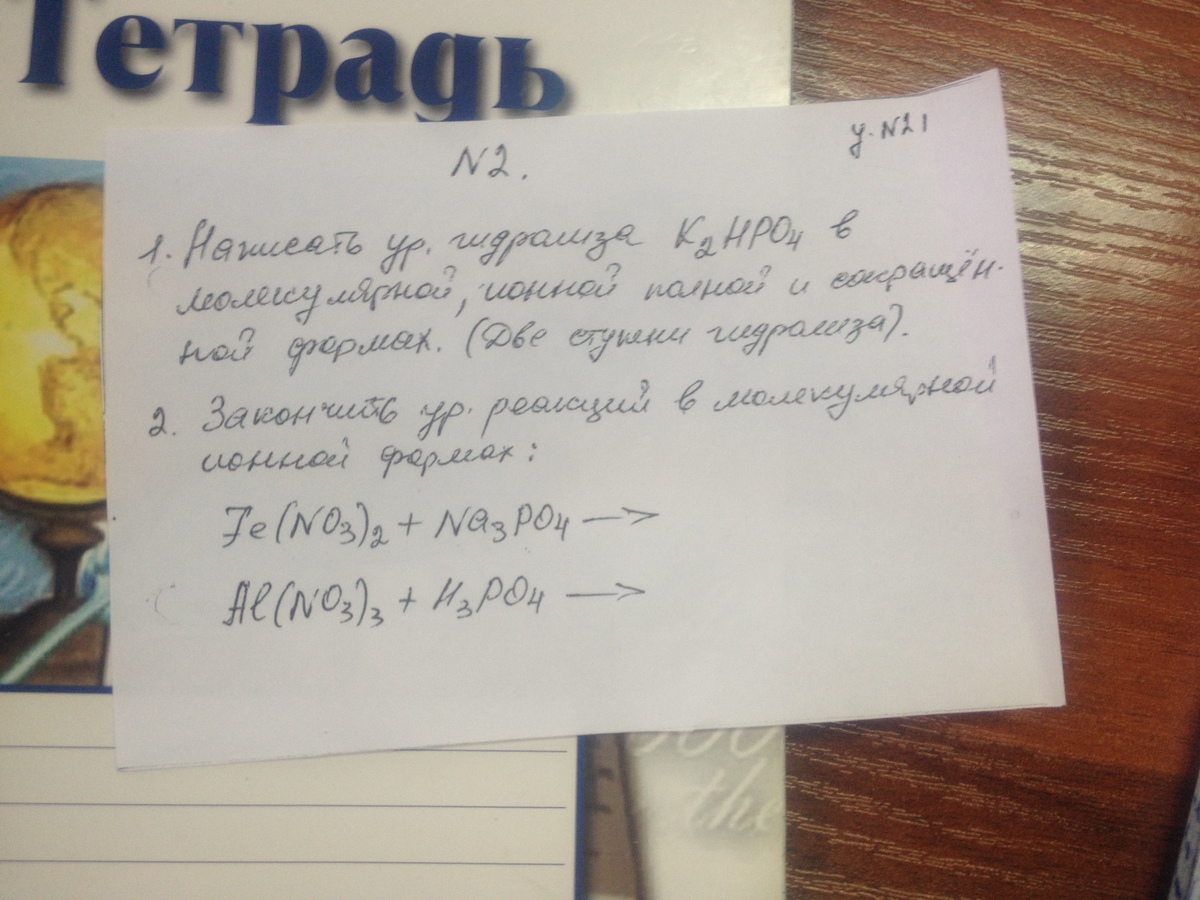 Тетрадь
у. N21
N2.
1. Написать ур. гидролиза K₂HPO₄ в
молекулярной, ионной полной и сокращён-
ной формах. (Две ступени гидролиза).
2. Закончить ур. реакций в молекулярной
ионной формах:
Fe(NO₃)₂ + Na₃PO₄ →
Al(NO₃)₃ + H₃PO₄ →
the